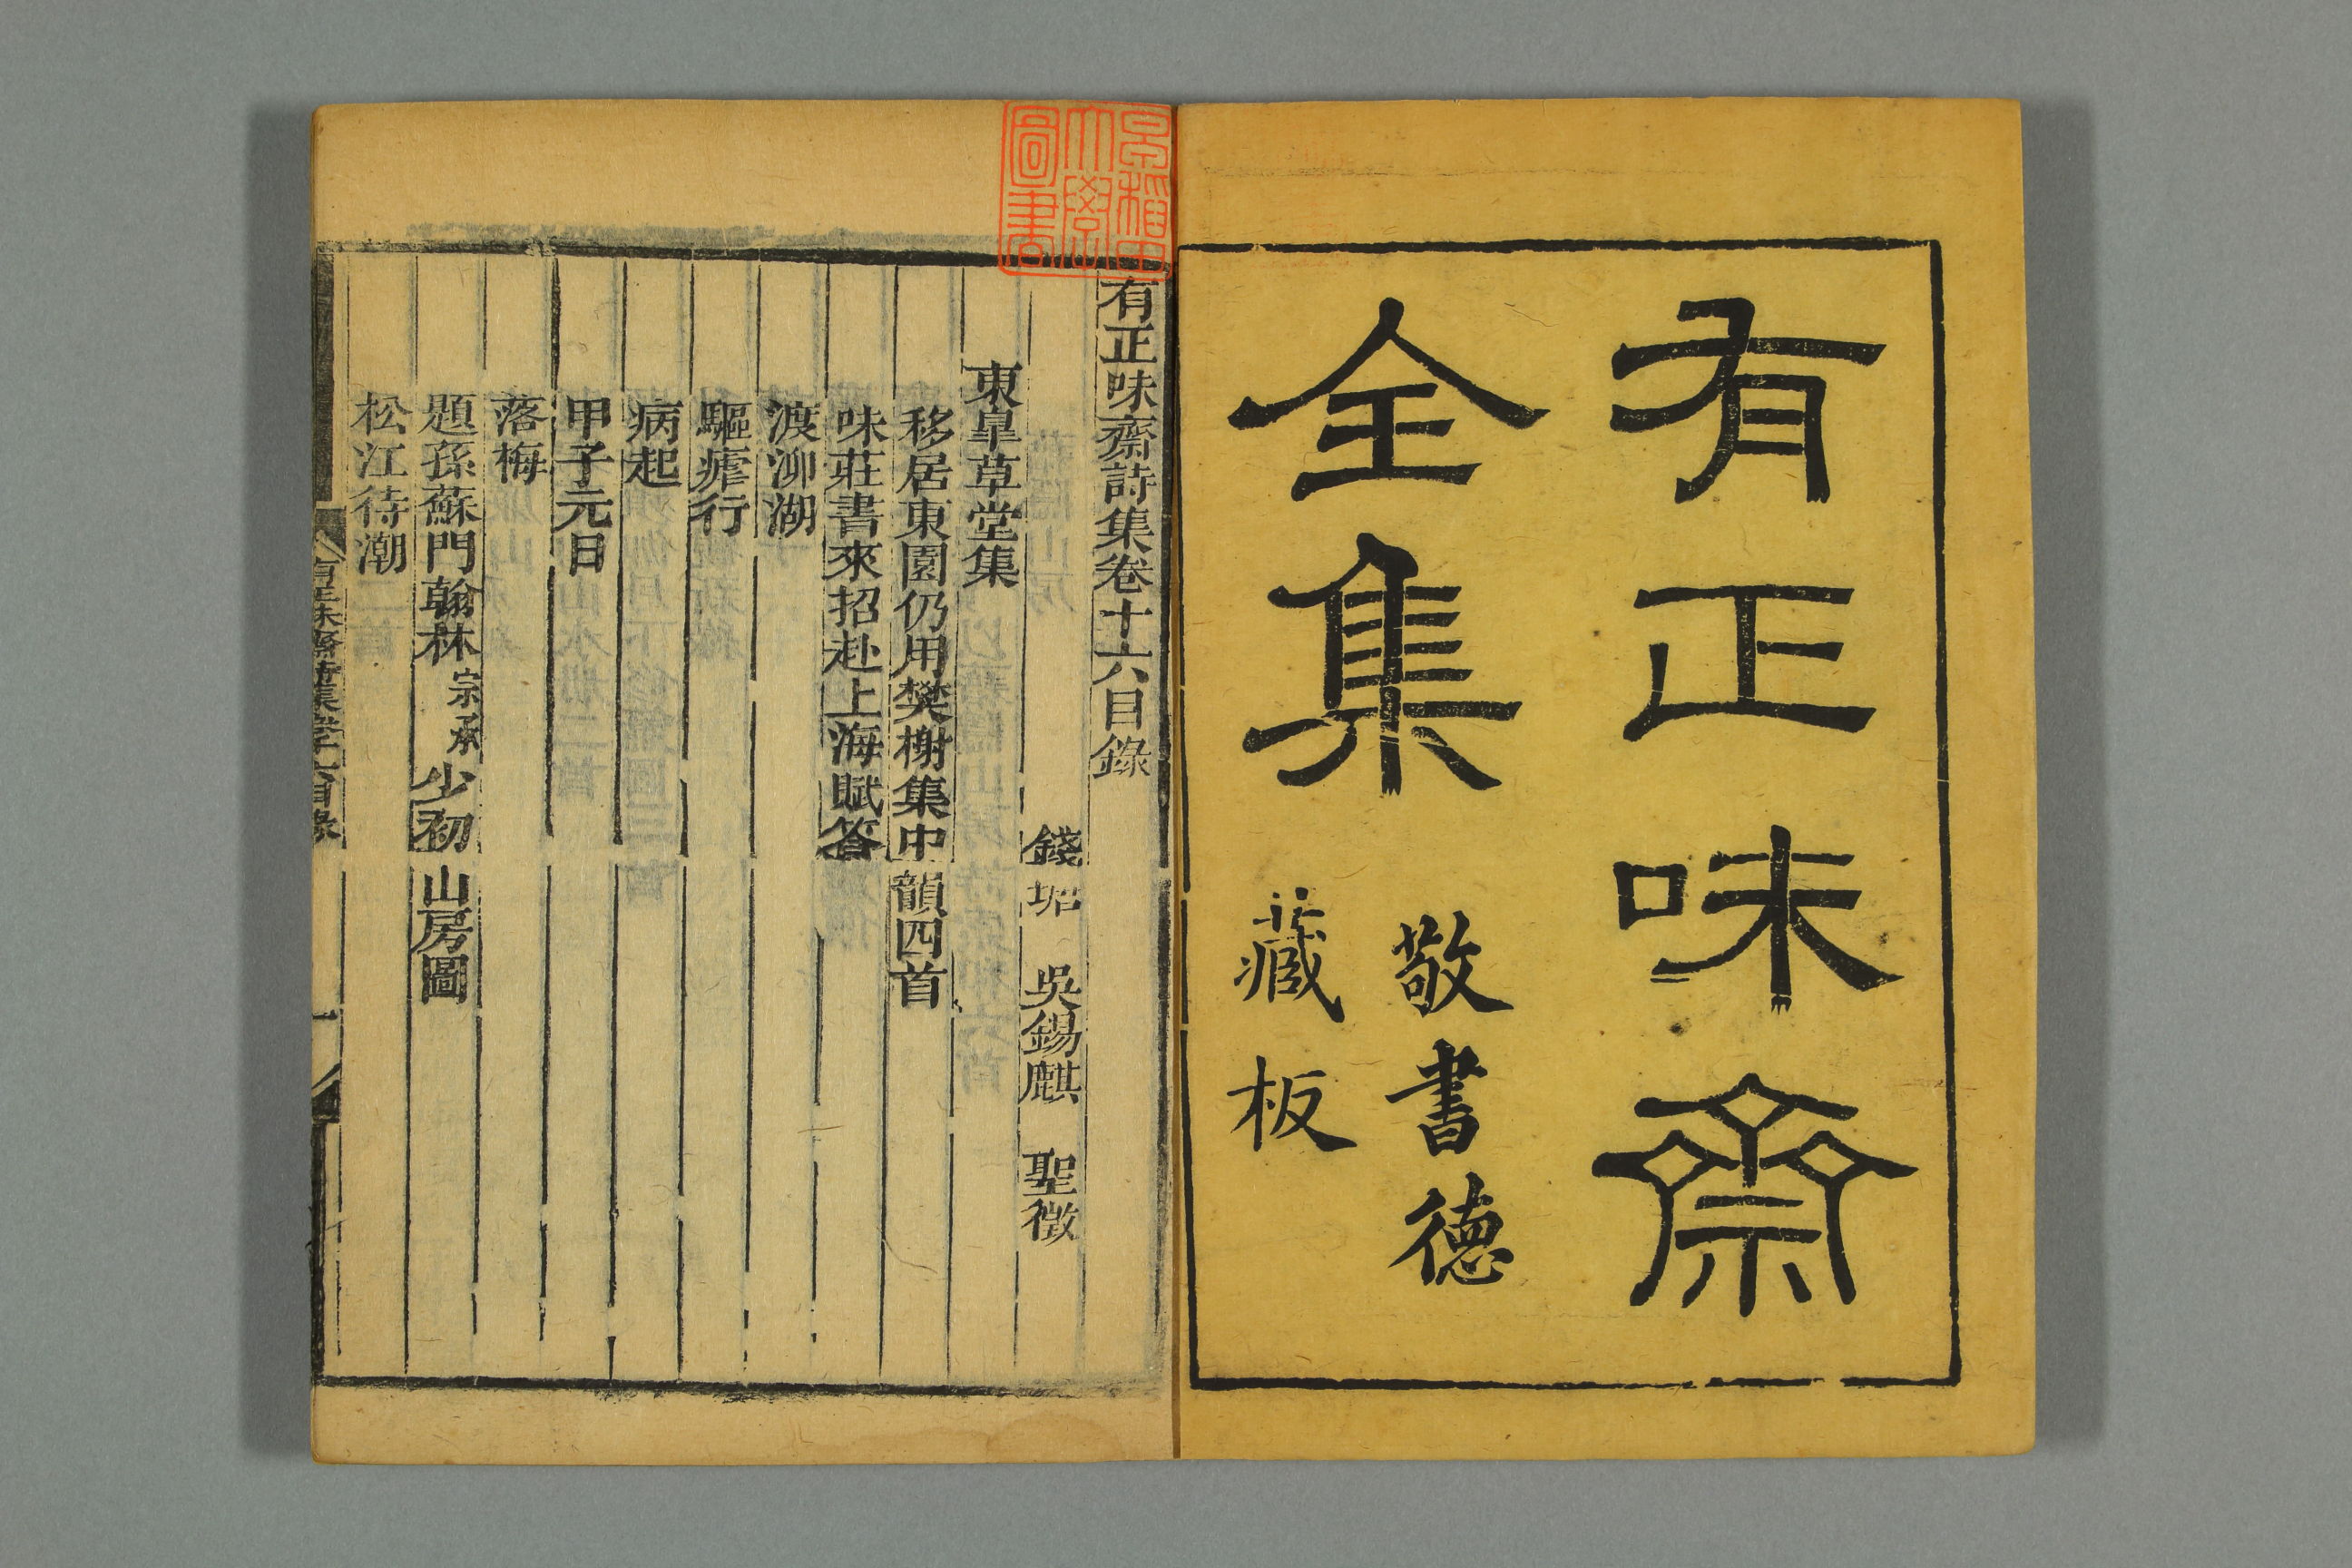 有正味齋
全集
敬書德
藏板
早稲田大學圖書
有正味齋詩集卷十六目錄
錢塘 吳錫麒 聖徵
東皐草堂集
移居東園仍用樊榭集中韻四首
味莊書來招赴上海賦答
渡泖湖
驅瘧行
病起
甲子元日
落梅
題孫蘇門翰林宗承少初山房圖
松江待潮
有正味齋詩集卷十六目錄 一